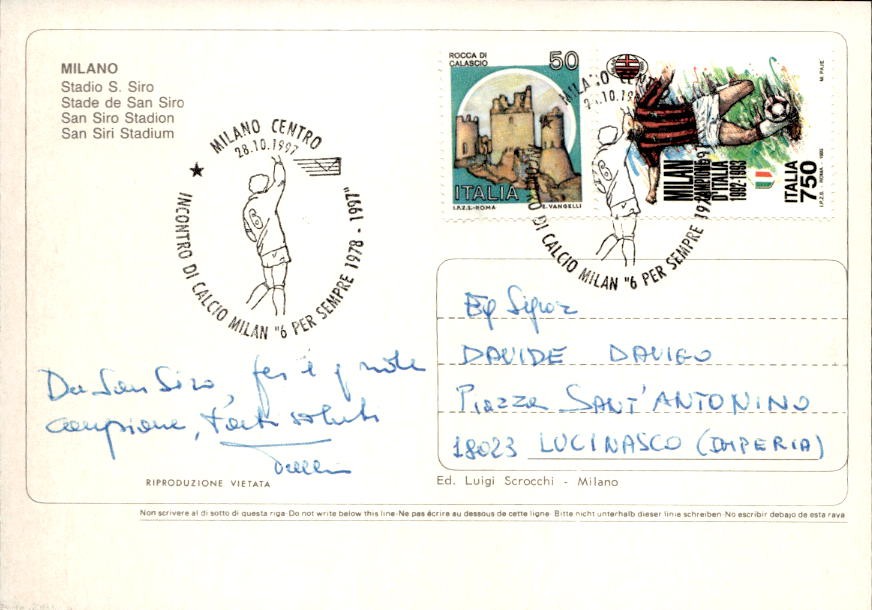 MILANO
Stadio S. Siro
Stade de San Siro
San Siro Stadion
San Siri Stadium
MILANO CENTRO
28.10.1997
INCONTRO DI CALCIO MILAN "6 PER SEMPRE 1978 - 1997"
ROCCA DI
CALASCIO
50
ITALIA
I.P.Z.S.-ROMA E. VANGELLI
MILAN
CAMPIONE
D'ITALIA
1992-1993
ITALIA
750
I.P.Z.S. - ROMA - 1993
MILANO CENT
.10.19
DI CALCIO MILAN "6 PER SEMPRE 19
Eg Signor
DAVIDE DAVIGO
Piazza SANT'ANTONINO
18023 LUCINASCO (IMPERIA)
Da San Siro, per i
campione, tanti saluti
RIPRODUZIONE VIETATA
Ed. Luigi Scrocchi - Milano
Non scrivere al di sotto di questa riga-Do not write below this line-Ne pas écrire au dessous de cette ligne-Bitte nicht unterhalb dieser linie schreiben-No escribir debajo de esta raya